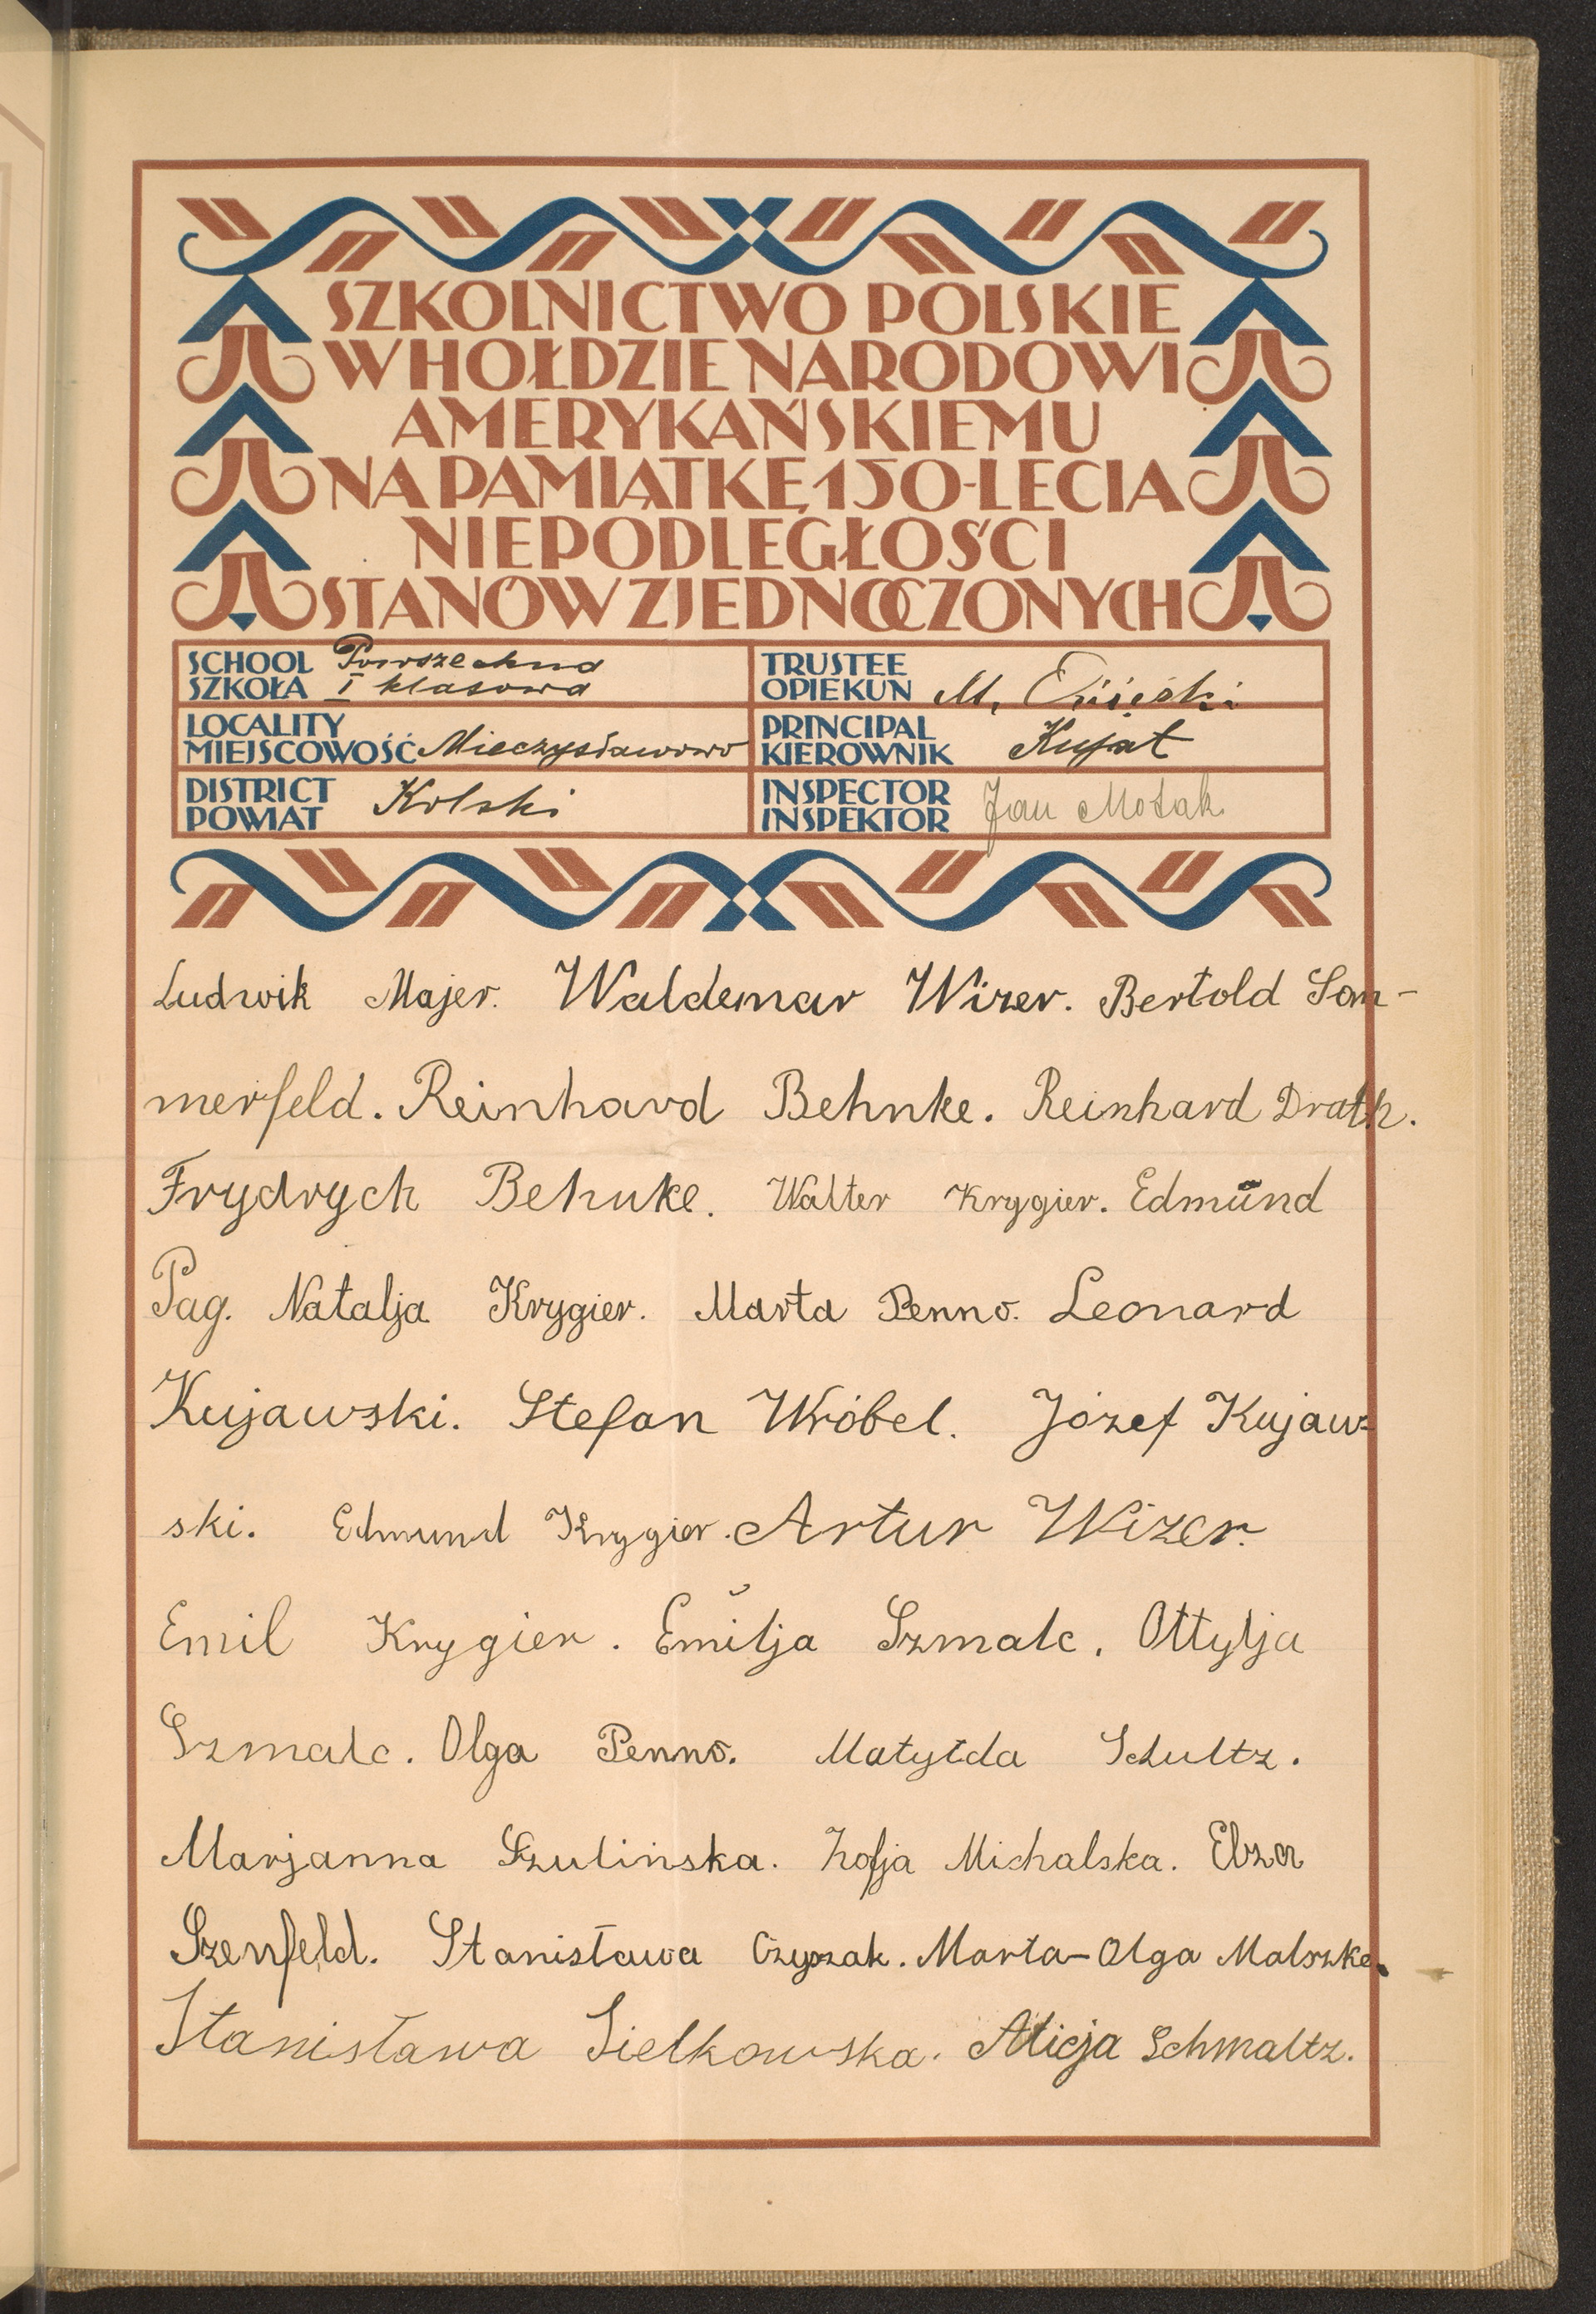 SZKOLNICTWO POLSKIE
W HOŁDZIE NARODOWI
AMERYKAŃSKIEMU
NA PAMIĄTKĘ 150-LECIA
NIEPODLEGŁOŚCI
STANÓW ZJEDNOCZONYCH
SCHOOL Powszechna
SZKOŁA I klasowa
TRUSTEE
OPIEKUN M.
LOCALITY
MIEJSCOWOŚĆ Mieczysławowo
PRINCIPAL
KIEROWNIK Kujat
DISTRICT
POWIAT Kolski
INSPECTOR
INSPEKTOR Jan
Ludwik Majer. Waldemar Wizer. Bertold Som-
merfeld. Reinhard Behnke. Reinhard Drath.
Frydrych Behnke. Walter Krygier. Edmund
Pag. Natalja Krygier. Marta Penno. Leonard
Kujawski. Stefan Wróbel. Józef Kujaw-
ski. Edmund Krygier. Artur Wizer.
Emil Krygier. Emilja Szmalc. Ottylja
Szmalc. Olga Penno. Matylda Schultz.
Marjanna Szulińska. Zofja Michalska. Elza
Szenfeld. Stanisława Czyszak. Marta-Olga Malszke.
Stanisława Sielkowska. Alicja Schmaltz.